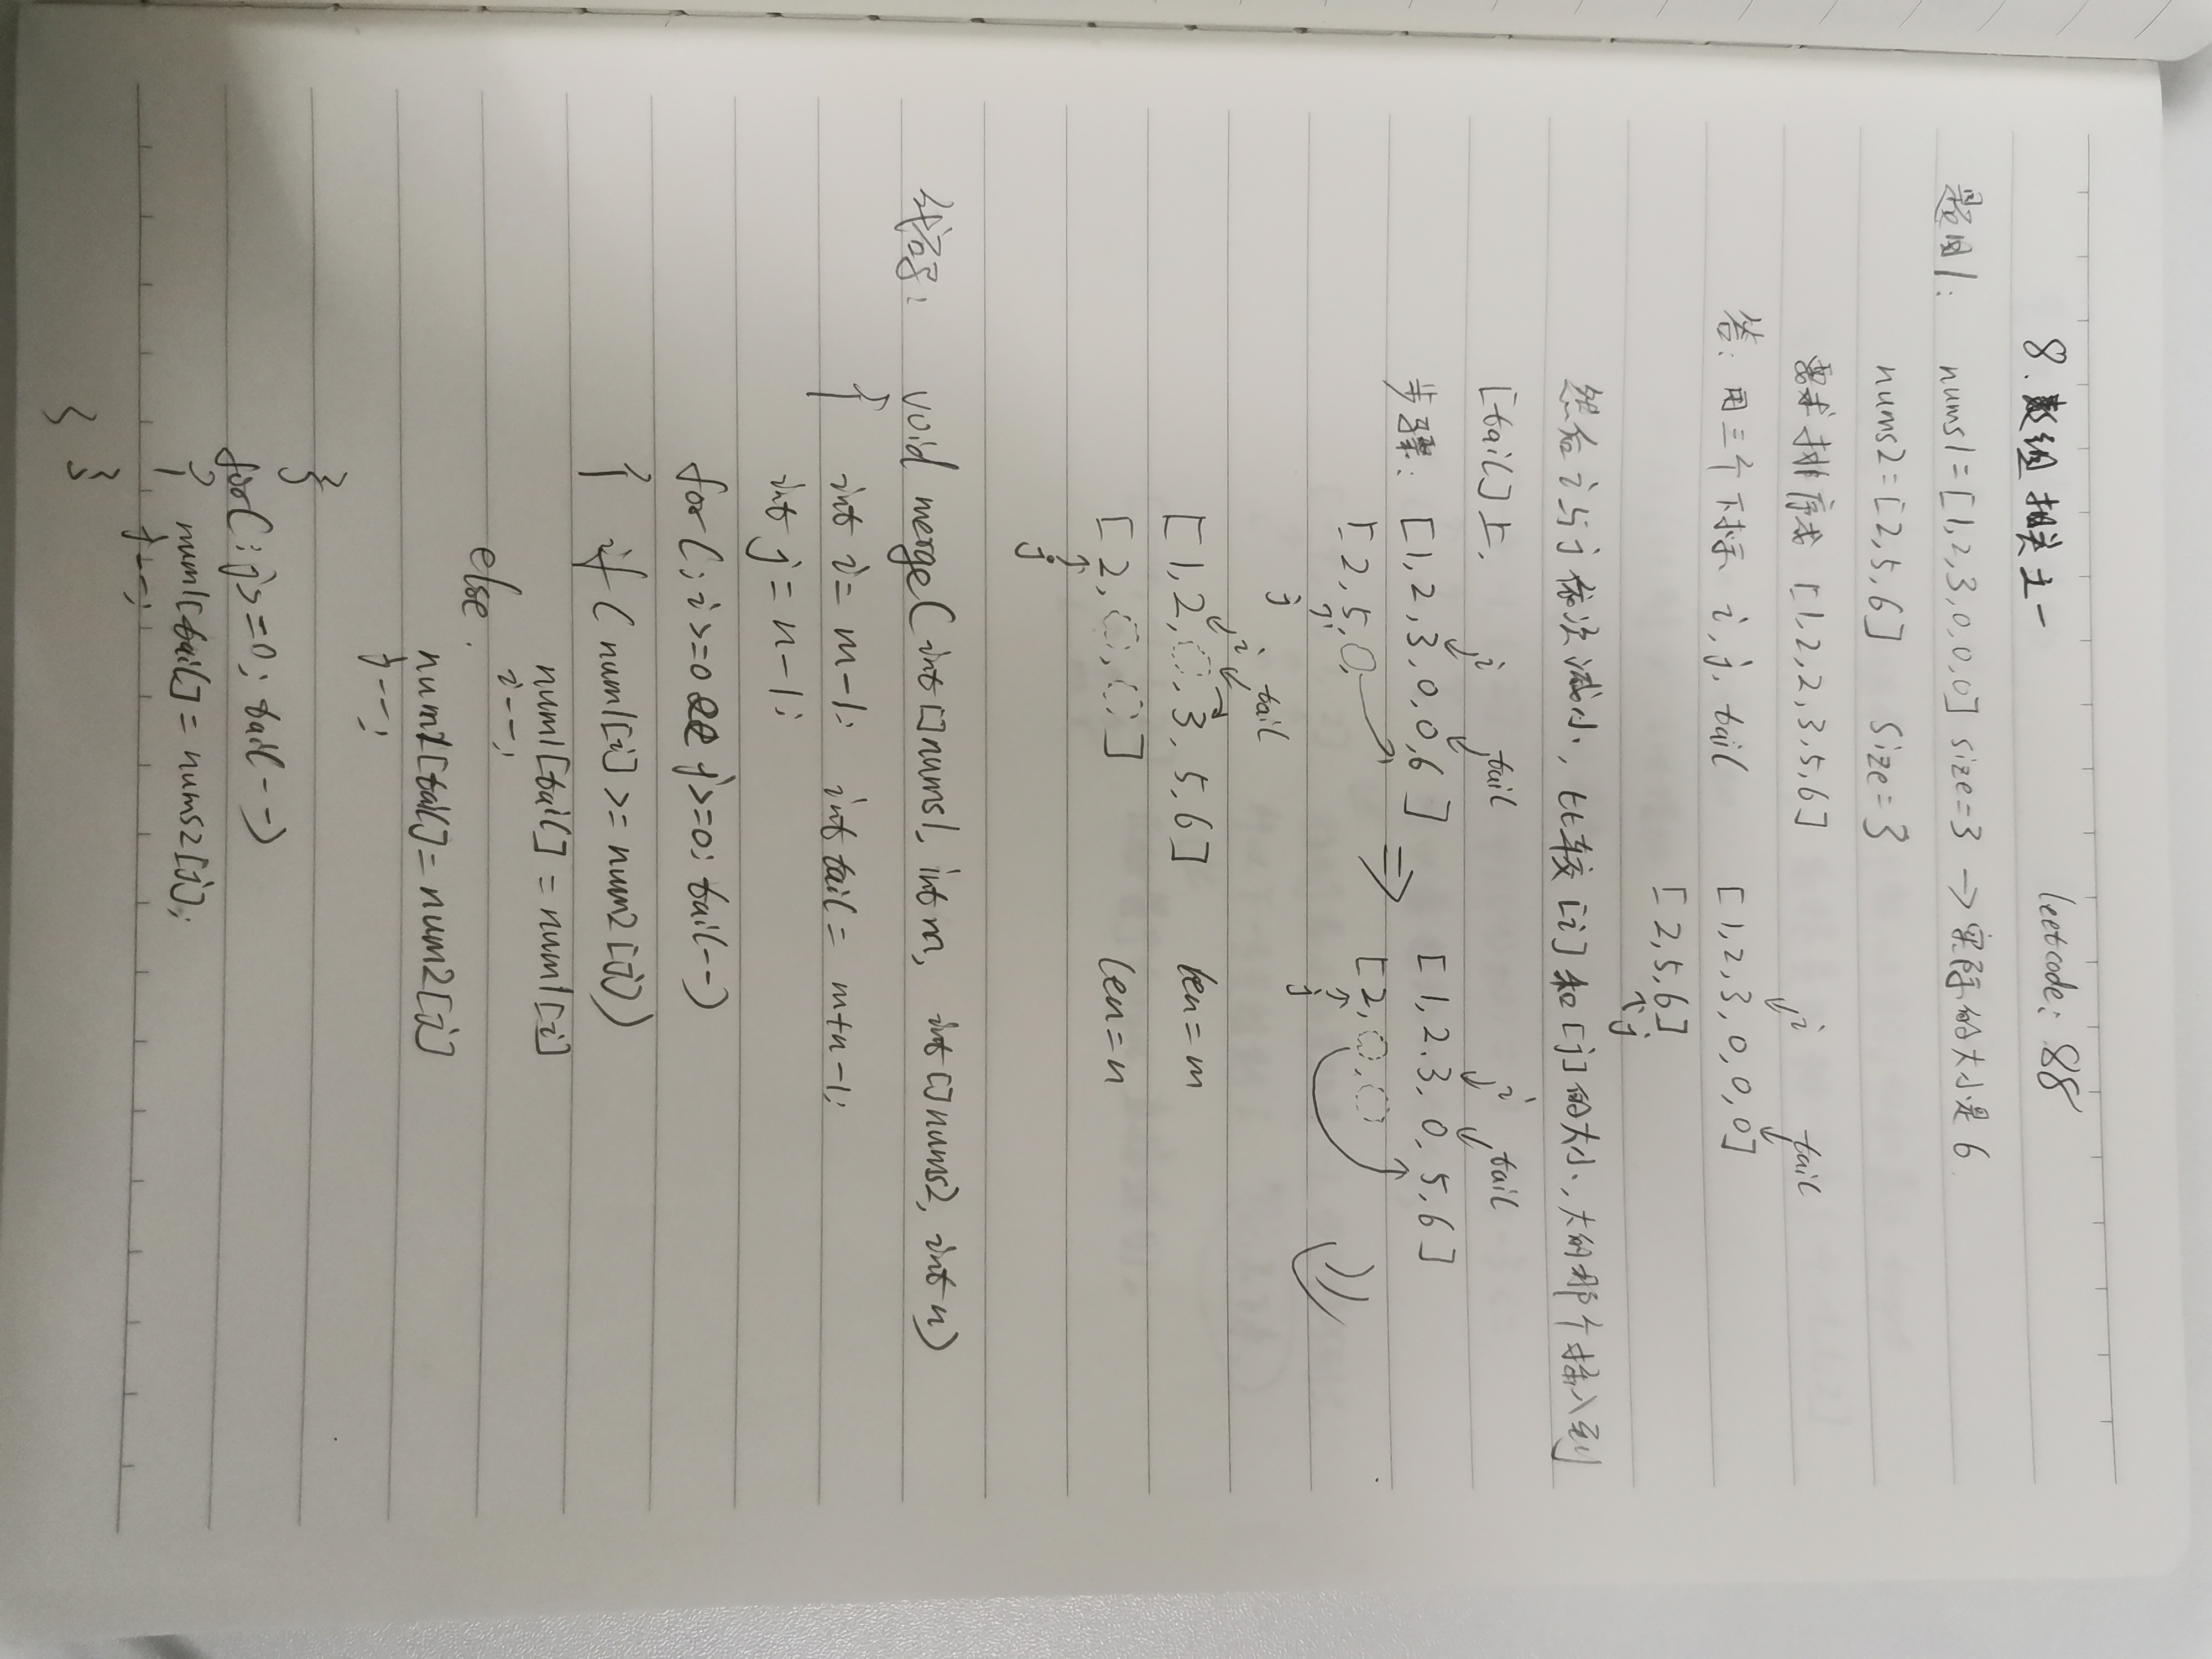 8. 数组相关之一 leetcode: 88
题目1: nums1=[1,2,3,0,0,0] size=3 → 实际的大小是6
nums2=[2,5,6] size=3
要求排序成 [1,2,2,3,5,6]
i tail
答: 用三个下标 i, j, tail [1,2,3,0,0,0]
[2,5,6]
j
然后i与j依次减小, 比较[i]和[j]的大小, 大的那个插入到
[tail]上.
i tail i tail
步骤: [1,2,3,0,0,6] ⇒ [1,2,3,0,5,6]
[2,5, [2,
j j
i tail
[1,2, ,3,5,6] len=m
[2, , ] len=n
j
代码: void merge(int[]nums1, int m, int[]nums2, int n)
{ int i= m-1; int tail= m+n-1;
int j=n-1;
for(; i>=0 && j>=0; tail--)
{ if(num1[i] >= num2[j])
num1[tail] = num1[i]
i--;
else
num1[tail]=num2[j]
j--;
}
for(; j>=0; tail--)
{ num1[tail]=nums2[j];
j--;
}
}